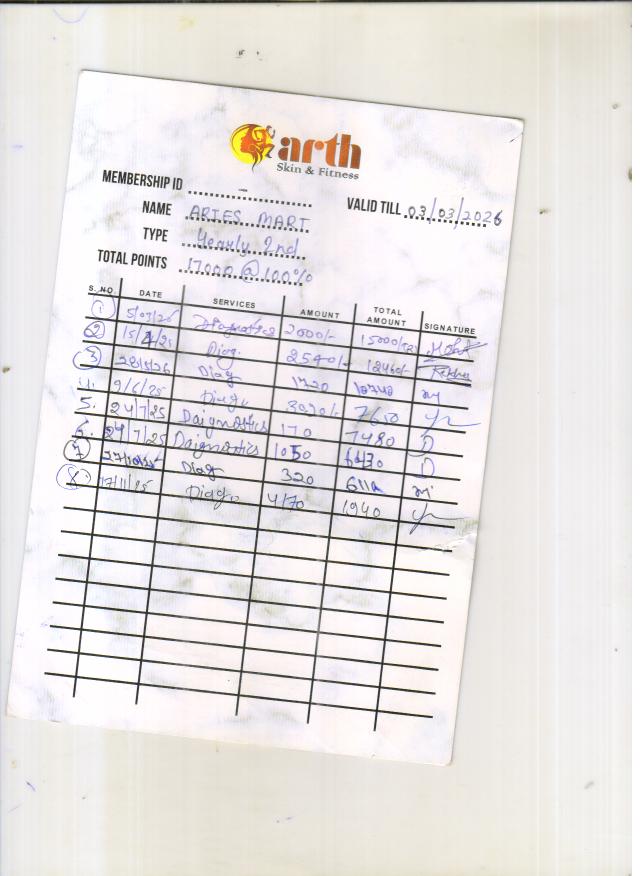 arth
Skin & Fitness
MEMBERSHIP ID
VALID TILL 03/03/2026
NAME ARIES MART
TYPE Yearly 2nd
TOTAL POINTS 17000 @ 100%
S. NO. DATE SERVICES AMOUNT TOTAL AMOUNT SIGNATURE
1 Diagnostics 2000/- 15000/-
2 Diag. 2540/- 12460/-
3 Diag 1720 10740
9/6/25 3090/- 7650
5. 24/7/25 Daignostics 170 7480
6. 29/7/25 Daignostics 1050 6430
7 Diag 320 6110
8 17/11/25 Diagn 4170 1940